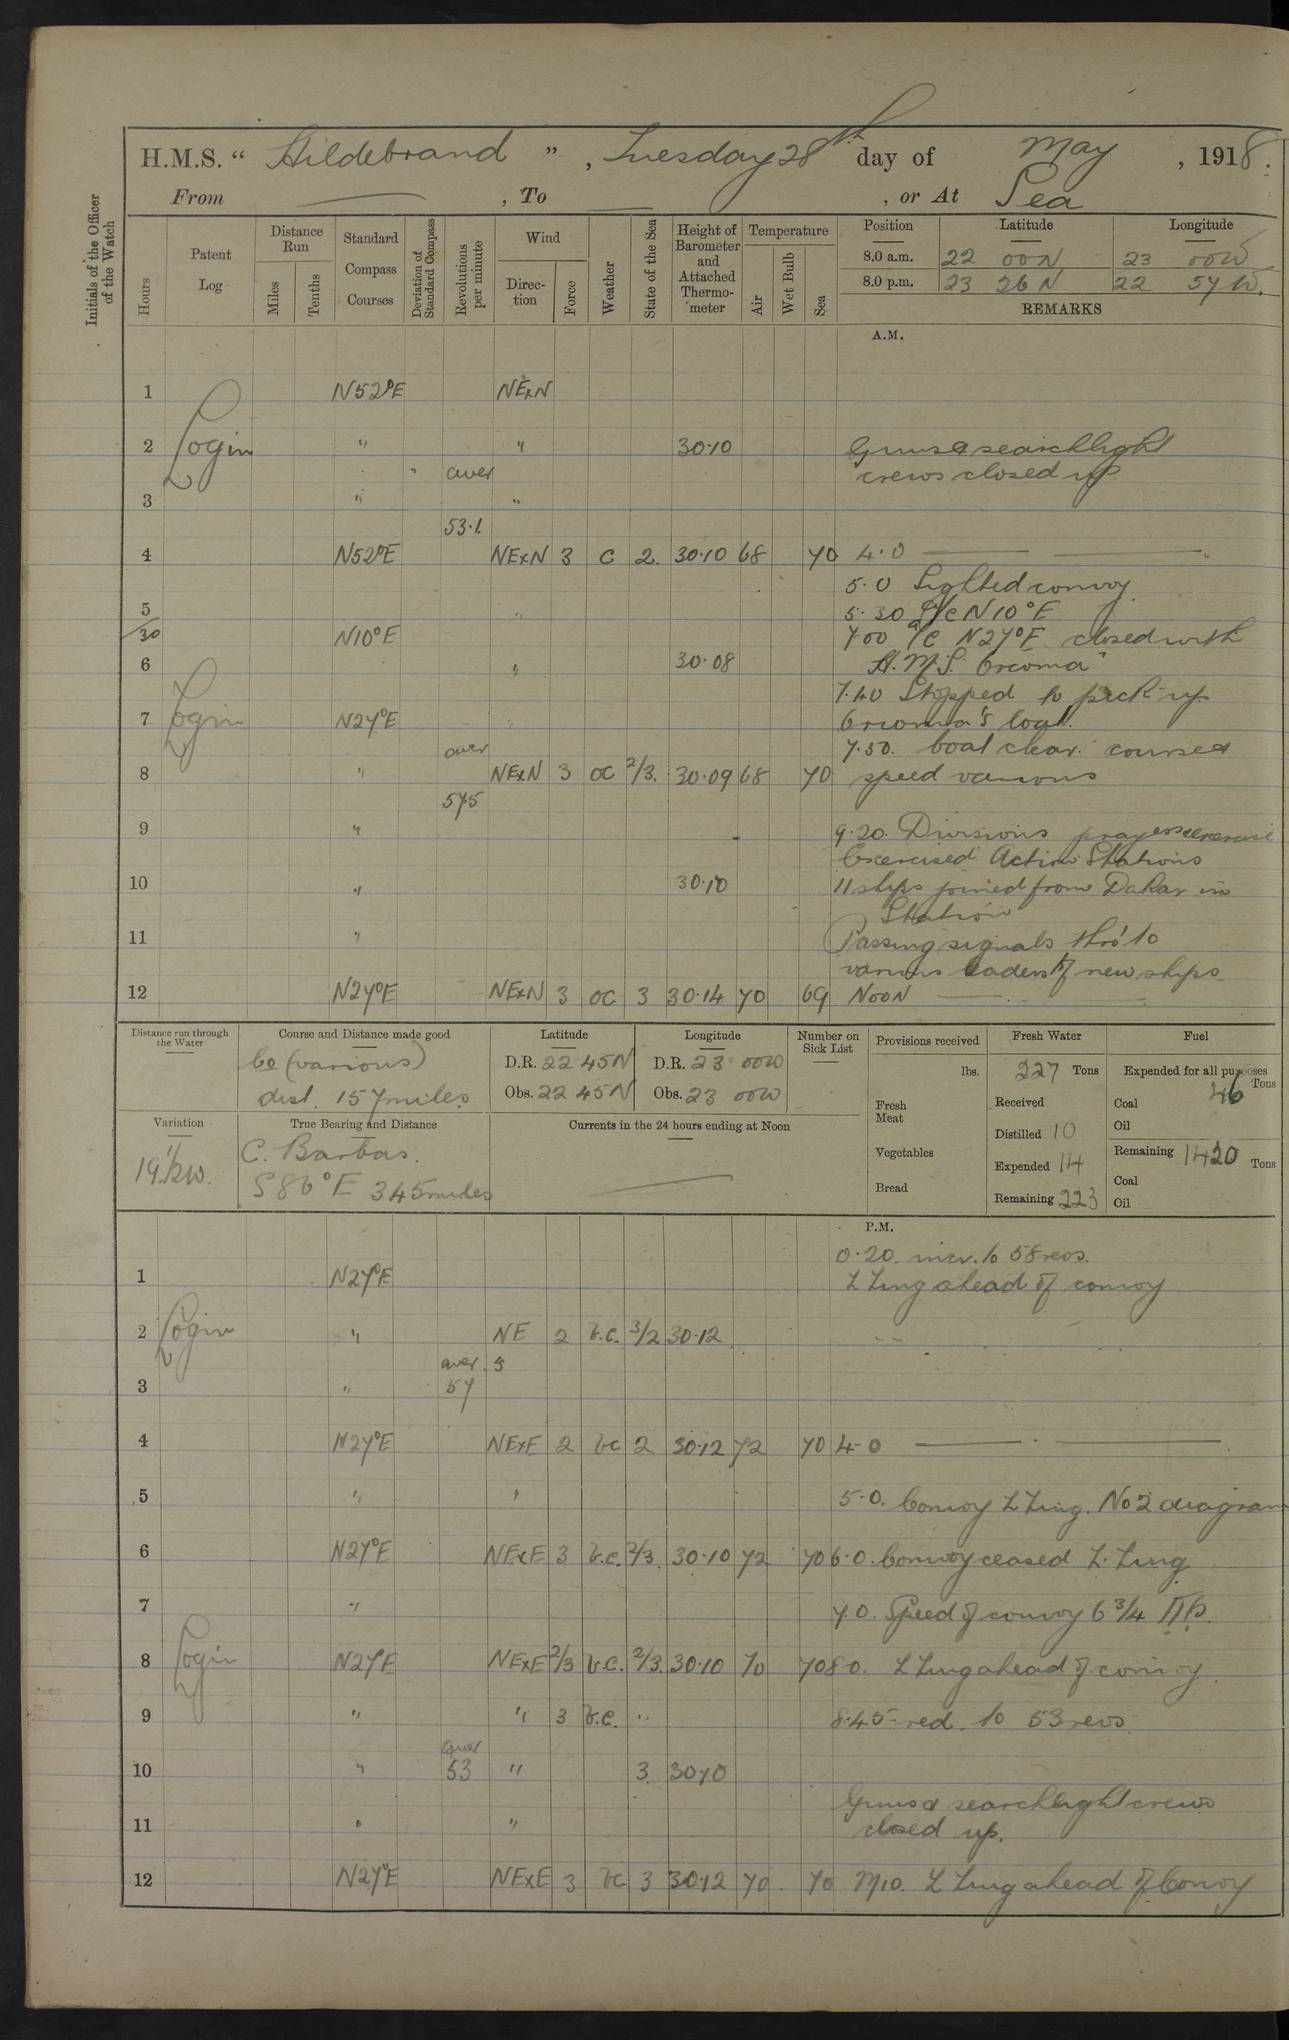 H.M.S. “ Hildebrand ” , Tuesday 28th day of May , 1918.
From — , To — , or At Sea
Initials of the Officer of the Watch
Hours
Patent Log
Distance Run
Miles
Tenths
Standard Compass Courses
Deviation of Standard Compass
Revolutions per minute
Wind
Direction
Force
Weather
State of the Sea
Height of Barometer and Attached Thermometer
Temperature
Air
Wet Bulb
Sea
Position Latitude Longitude
8.0 a.m. 22 00N 23 00W
8.0 p.m. 23 26N 22 57W.
REMARKS
A.M.
1 N52°E NExN
2 Login " " 30.10 Guns & searchlight
aver crews closed up
3 " "
53.1
4 N52°E NExN 3 C 2. 30.10 68 70 4.0 —
5.0 Sighted convoy
5 " 5.30 a/c N10°E
/30 N10°E 7.00 a/c N27°E closed with
6 " 30.08 H.M.S. Orcoma"
7.40 Stopped to pick up
7 Login N27°E " Orcoma's boat.
aver 7.50. boat clear. course &
8 " NExN 3 OC 2/3. 30.09 68 70 speed various
57.5
9 " 9.20. Divisions prayers exercise
Exercised Action Stations
10 " 30.10 11 ships joined from Dakar in
Station
11 " Passing signals thro' to
various leaders of new ships
12 N27°E NExN 3 OC 3 30.14 70 69 NOON —
Distance run through the Water
Course and Distance made good
Co (various)
dist. 157 miles
Latitude
D.R. 22 45N
Obs. 22 45N
Longitude
D.R. 23 00W
Obs. 23 00W
Number on Sick List
Provisions received
lbs.
Fresh Meat
Vegetables
Bread
Fresh Water
227 Tons
Received
Distilled 10
Expended 14
Remaining 223
Fuel
Expended for all purposes
46 Tons
Coal
Oil
Remaining 1420 Tons
Coal
Oil
Variation
19 1/2W.
True Bearing and Distance
C. Barbas.
S86°E 345 miles
Currents in the 24 hours ending at Noon
—
P.M.
0.20. incr. to 58 revs.
1 N27°E Z Zing ahead of convoy
2 Login " NE 2 b.c. 3/2 30.12
aver.
3 " 57
4 N27°E NExE 2 bc 2 30.12 72 70 4.0 —
5 " " 5.0. Convoy Z Zing. No 2 diagram
6 N27°E NExE 3 b.c. 2/3. 30.10 72 70 6.0. Convoy ceased Z. Zing
7 " 7.0. Speed of convoy 6 3/4
8 Login N27°E NExE 2/3 b.c. 2/3. 30.10 70 70 8.0. Z Zing ahead of convoy
9 " " 3 b.c. " 8.45 red. to 53 revs.
aver
10 " 53 " 3. 30.10
Guns & searchlight crews
11 " " closed up.
12 N27°E NExE 3 bc 3 30.12 70 70 Z Zing ahead of Convoy